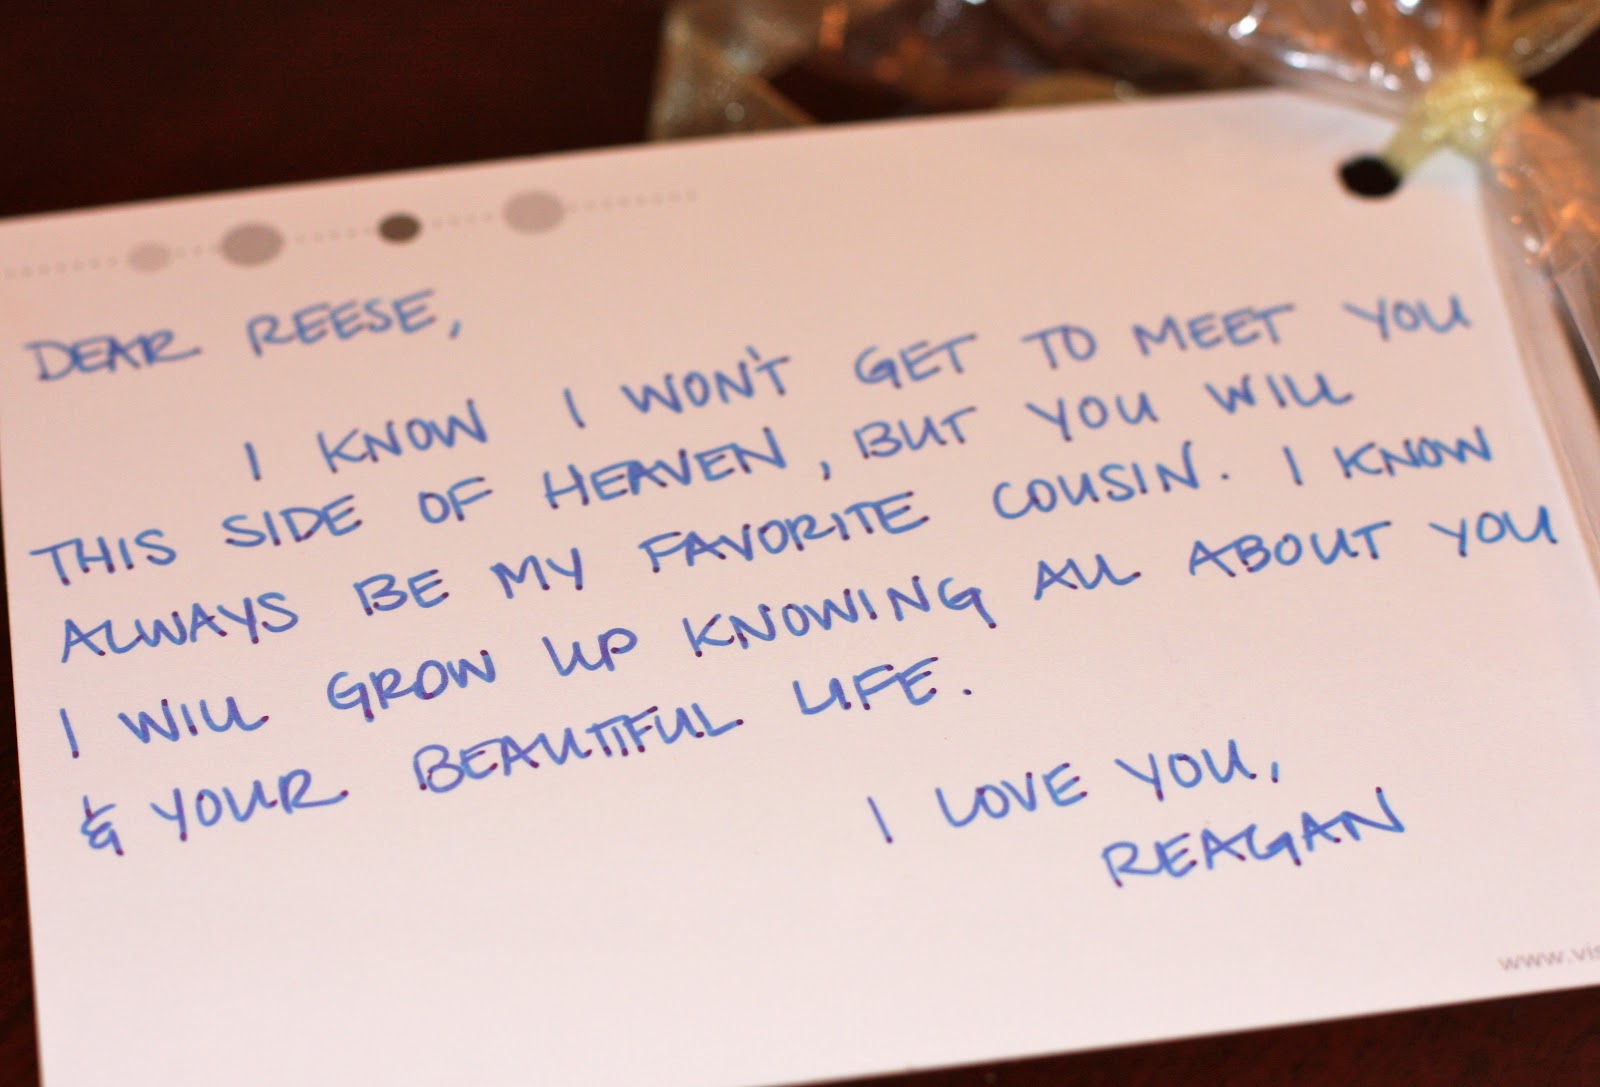 DEAR REESE,
I KNOW I WON'T GET TO MEET YOU
THIS SIDE OF HEAVEN, BUT YOU WILL
ALWAYS BE MY FAVORITE COUSIN. I KNOW
I WILL GROW UP KNOWING ALL ABOUT YOU
& YOUR BEAUTIFUL LIFE.
I LOVE YOU,
REAGAN
www.vis